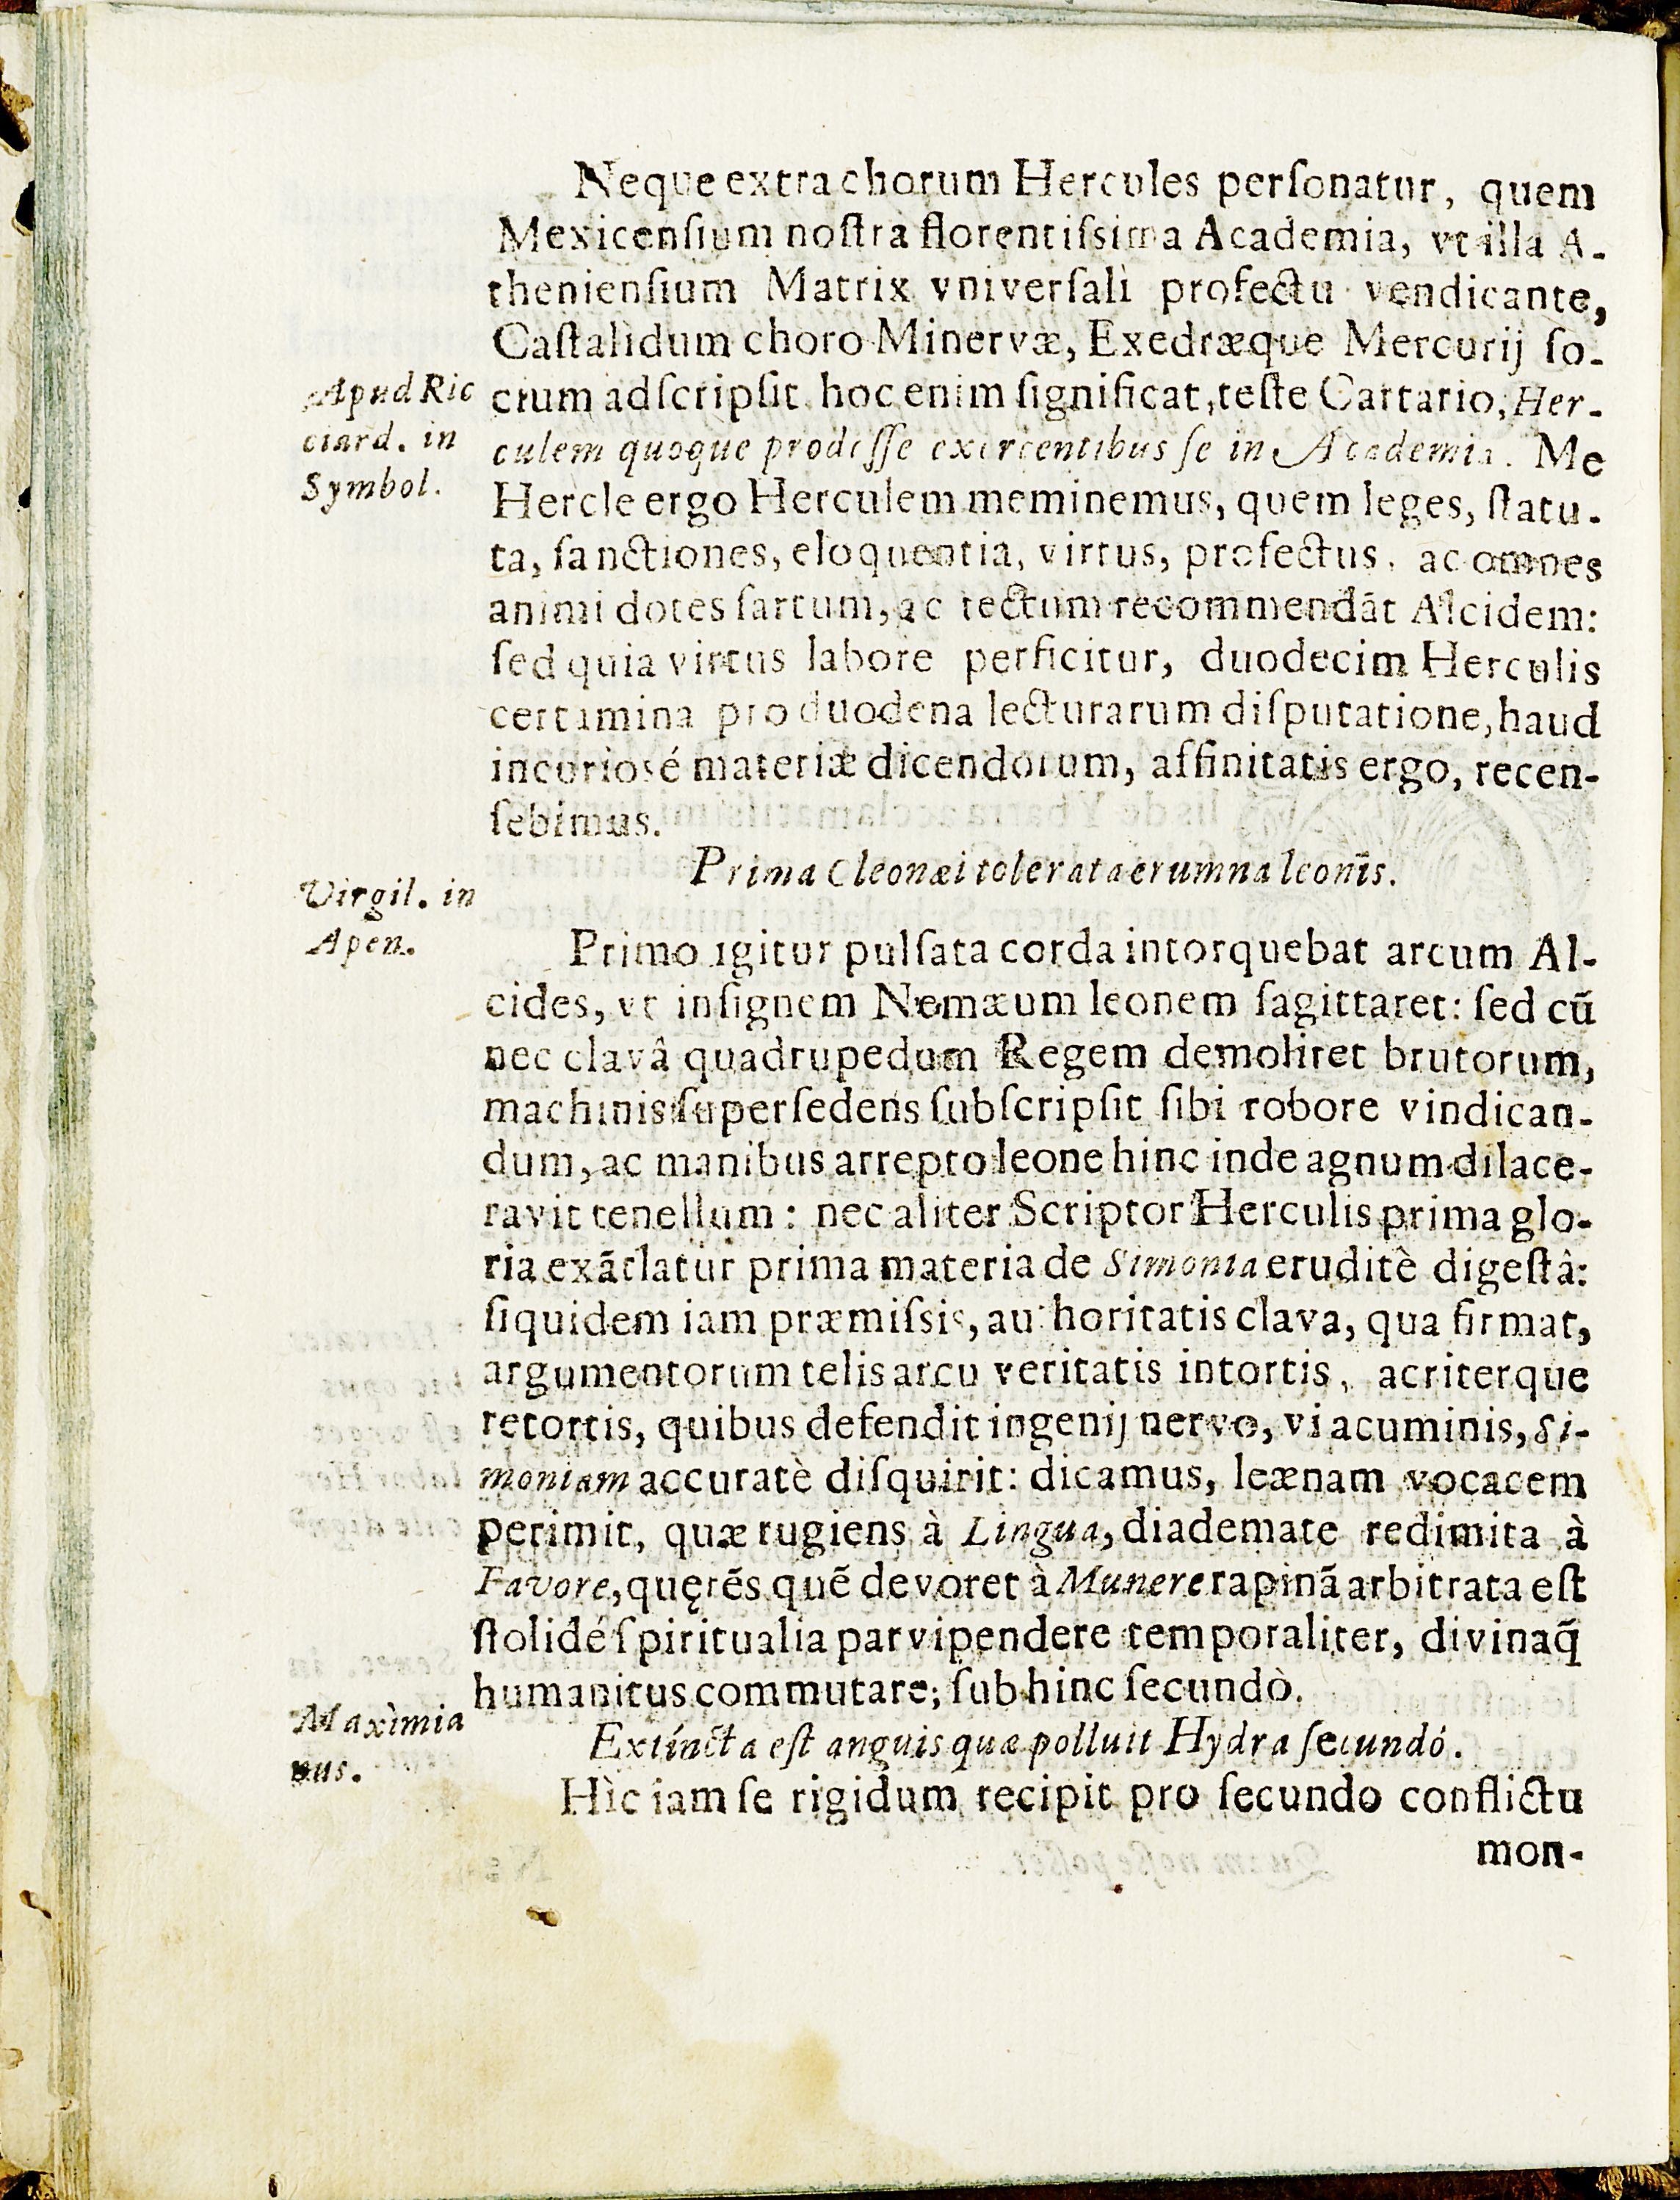 Neque extra chorum Hercules perſonatur, quem
Mexicenſium noſtra florentiſsima Academia, vt illa A-
thenienſium Matrix vniverſali profectu vendicante,
Caſtalidum choro Minervæ, Exedræque Mercurij ſo-
Apud Ric
ciard. in
Symbol.
cium adſcripſit hoc enim ſignificat, teſte Cartario, Her-
culem quoque prodeſſe exercentibus ſe in Academia. Me
Hercle ergo Herculem meminemus, quem leges, ſtatu-
ta, ſanctiones, eloquentia, virtus, profectus, ac omnes
animi dotes ſartum, ac tectum recommendãt Alcidem:
ſed quia virtus labore perficitur, duodecim Herculis
certamina pro duodena lecturarum diſputatione, haud
incuriosé materiæ dicendorum, affinitatis ergo, recen-
ſebimus.
Virgil. in
Apen.
Prima Cleonæi tolerata erumna leonis.
Primo igitur pulſata corda intorquebat arcum Al-
cides, vt inſignem Nemæum leonem ſagittaret: ſed cũ
nec clavâ quadrupedum Regem demoliret brutorum,
machinis ſuperſedens ſubſcripſit ſibi robore vindican-
dum, ac manibus arrepto leone hinc inde agnum dilace-
ravit tenellum: nec aliter Scriptor Herculis prima glo-
ria exãtlatur prima materia de Simonia eruditè digeſtâ:
ſiquidem iam præmiſsis, authoritatis clava, qua firmat,
argumentorum telis arcu veritatis intortis, acriterque
retortis, quibus defendit ingenij nervo, vi acuminis, Si-
moniam accuratè diſquirit: dicamus, leænam vocacem
perimit, quæ rugiens à Lingua, diademate redimita à
Favore, quęrẽs quẽ devoret à Munere rapinã arbitrata eſt
ſtolidé ſpiritualia parvipendere temporaliter, divinaq̃
humanitus commutare; ſub hinc ſecundò.
Maximia
nus.
Extincta eſt anguis quæ polluit Hydra ſecundó.
Hìc iam ſe rigidum recipit pro ſecundo conflictu
mon-